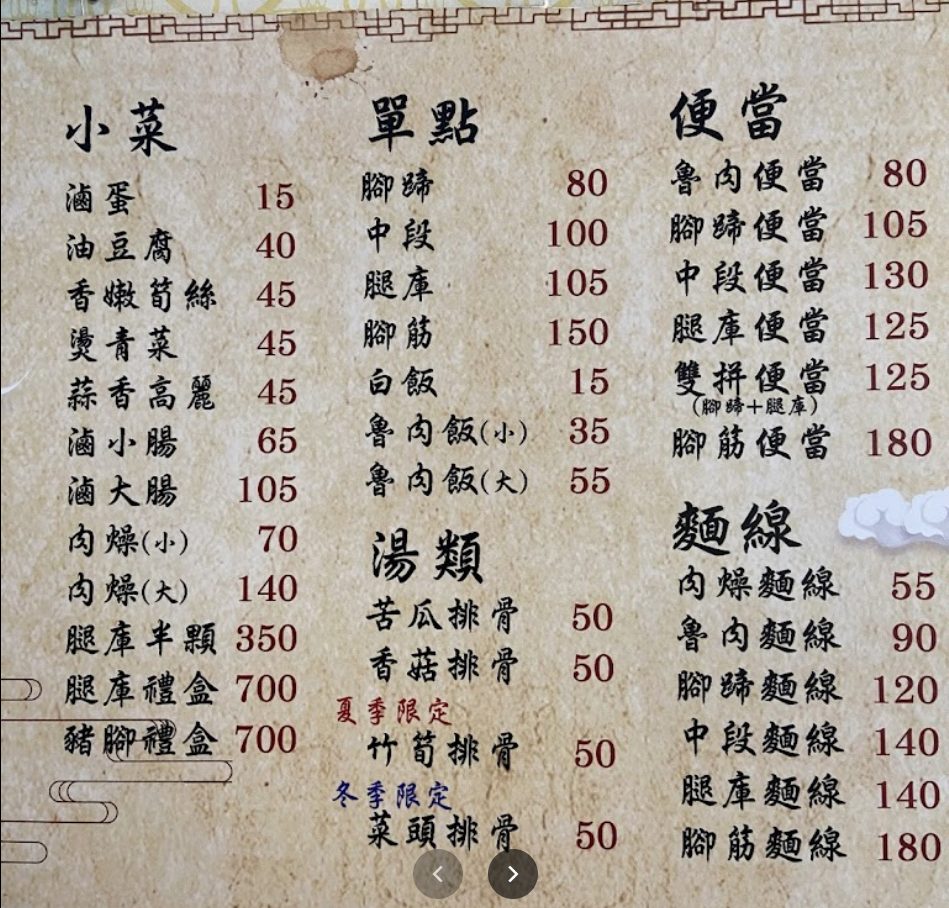 小菜
滷蛋 15
油豆腐 40
香嫩筍絲 45
燙青菜 45
蒜香高麗 45
滷小腸 65
滷大腸 105
肉燥(小) 70
肉燥(大) 140
腿庫半顆 350
腿庫禮盒 700
豬腳禮盒 700
單點
腳蹄 80
中段 100
腿庫 105
腳筋 150
白飯 15
魯肉飯(小) 35
魯肉飯(大) 55
湯類
苦瓜排骨 50
香菇排骨 50
夏季限定
竹筍排骨 50
冬季限定
菜頭排骨 50
便當
魯肉便當 80
腳蹄便當 105
中段便當 130
腿庫便當 125
雙拼便當 125
(腳蹄+腿庫)
腳筋便當 180
麵線
肉燥麵線 55
魯肉麵線 90
腳蹄麵線 120
中段麵線 140
腿庫麵線 140
腳筋麵線 180